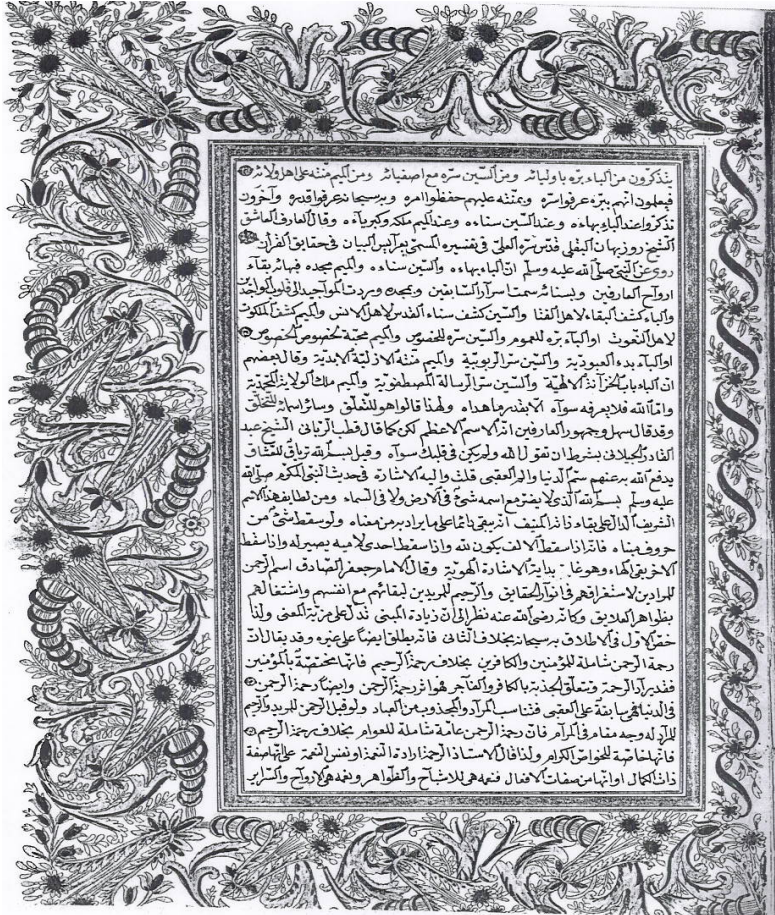 يتذكرون من الباء بره باوليائه ومن السين سره مع اصفيائه ومن الميم منته على اهل ولائه
فيعلمون انهم ببره عرفوا سره وبمنته عليهم حفظوا امره وبه سبحانه عرفوا قدره وآخرون
تذكروا عند الباء بهاءه وعند السين سناءه وعند الميم ملكه وكبرياءه وقال العارف العاشق
الشيخ روزبهان البقلي قدس سره العلي في تفسيره المسمى بعرايس البيان في حقايق القرآن
روى عن النبي صلى الله عليه وسلم ان الباء بهاءه والسين سناءه والميم مجده فبهائه بقاء
ارواح العارفين وبسنائه سمت اسرار السابقين وبمجده وردت المواجيد الى قلوب الواجدين
والباء كشف البقاء لاهل الفنا والسين كشف سناء القدس لاهل الانس والميم كشف الملكوت
لاهل النعوت او الباء بره للعموم والسين سره للخصوص والميم محبة لخصوص الخصوص
او الباء بدء العبودية والسين سر الربوبية والميم منته الازلية الابدية وقال بعضهم
ان الباء باب الخزانة الالهية والسين سر الرسالة المصطفوية والميم ملك الولاية المحمدية
واما الله فلا يعرفه سواه الا بقدر ما هداه ولهذا قالوا هو للتعلق وسائر اسمائه للتخلق
وقد قال سهل وجمهور العارفين انه الاسم الاعظم لكن كما قال قطب الرباني الشيخ عبد
القادر الجيلاني بشرط ان تقول لله ولم يكن في قلبك سواه وقيل بسم الله ترياق للعشاق
يدفع الله به عنهم سم الدنيا والم العقبى قلت واليه الاشارة في حديث النبي المكرم صلى الله
عليه وسلم بسم الله الذي لا يضر مع اسمه شئ في الارض ولا في السماء ومن لطايف هذا الاسم
الشريف الدال على بقاء ذاته المنيف انه يبقى دائما على ما يراد به من معناه ولو سقط شئ من
حروف مبناه فانه اذا سقط الالف يكون لله واذا سقط احدى لاميه يصير له واذا سقط
الاخر بقى الهاء وهو بداية الاشارة الهوية وقال الامام جعفر الصادق اسم الرحمن
للمرادين لاستغراقهم في انوار الحقايق والرحيم للمريدين لبقائهم مع انفسهم واشتغالهم
بظواهر العلايق وكانه رضى الله عنه نظر الى ان زيادة المبنى تدل على مزية المعنى ولذا
خص الاول في الاطلاق به سبحانه بخلاف الثاني فانه يطلق ايضا على غيره وقد يقال ان
رحمة الرحمن شاملة للمؤمنين والكافرين بخلاف رحمة الرحيم فانها مختصة بالمؤمنين
فقد يراد الرحمة وتتعلق الجذبة بالكافر والفاجر فهو اثر رحمة الرحمن وايضا رحمة الرحمن
في الدنيا فهي سابقة على العقبى فتناسب المراد والمجذوب من العباد ولو قيل الرحمن للمريد والرحيم
للمراد له وجه مقام في المرام فان رحمة الرحمن عامة شاملة للعوام بخلاف رحمة الرحيم
فانها خاصة للخواص الكرام ولذا قال الاستاذ الرحمة ارادة النعمة او نفس النعمة على انها صفة
ذات الكمال او انها من صفات الافعال فنعمة هي للاشباح والظواهر ونعمة هي للارواح والسراير